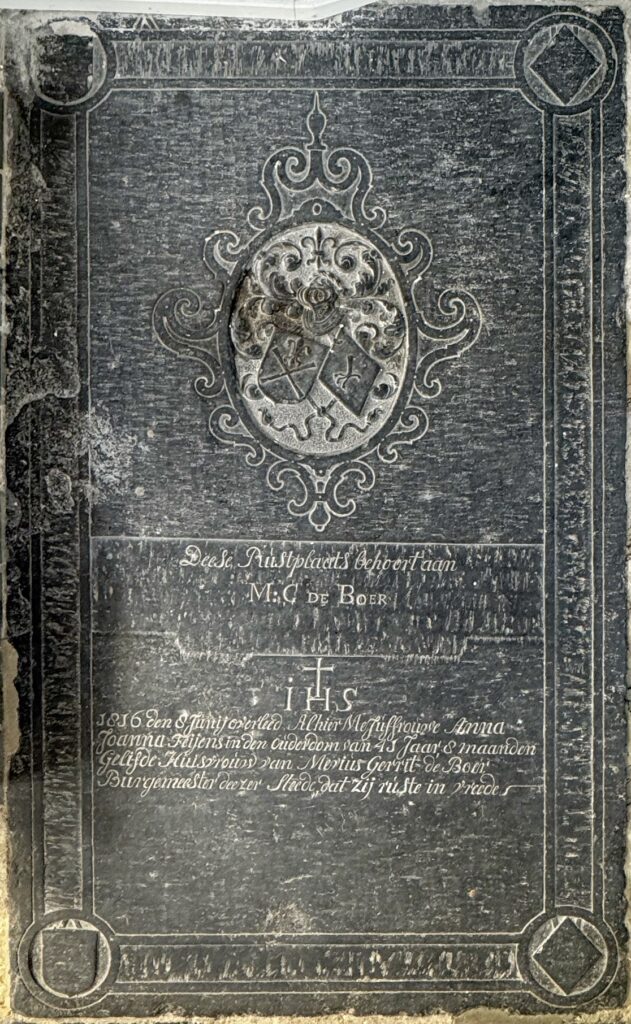 Deese Rustplaets behoort aan
M: G DE BOER
IHS
1816 den 8 Junij overleed Alhier Mejuffrouwe Anna
Joanna Feijens in den Ouderdom van 41 Jaar 8 maanden
Gelifde Huisvrouw van Merius Gerrit de Boer
Burgemeester deezer Steede, dat Zij ruste in vreede